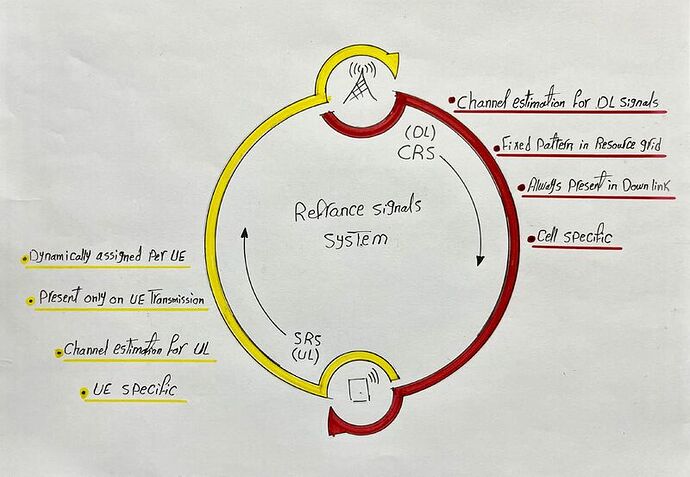 Channel estimation for DL signals
Fixed Pattern in Resource grid
Always Present in Down link
Cell specific
(DL)
CRS
Refrance signals
System
Dynamically assigned Per UE
Present only on UE Transmission
Channel estimation for UL
UE specific
SRS
(UL)